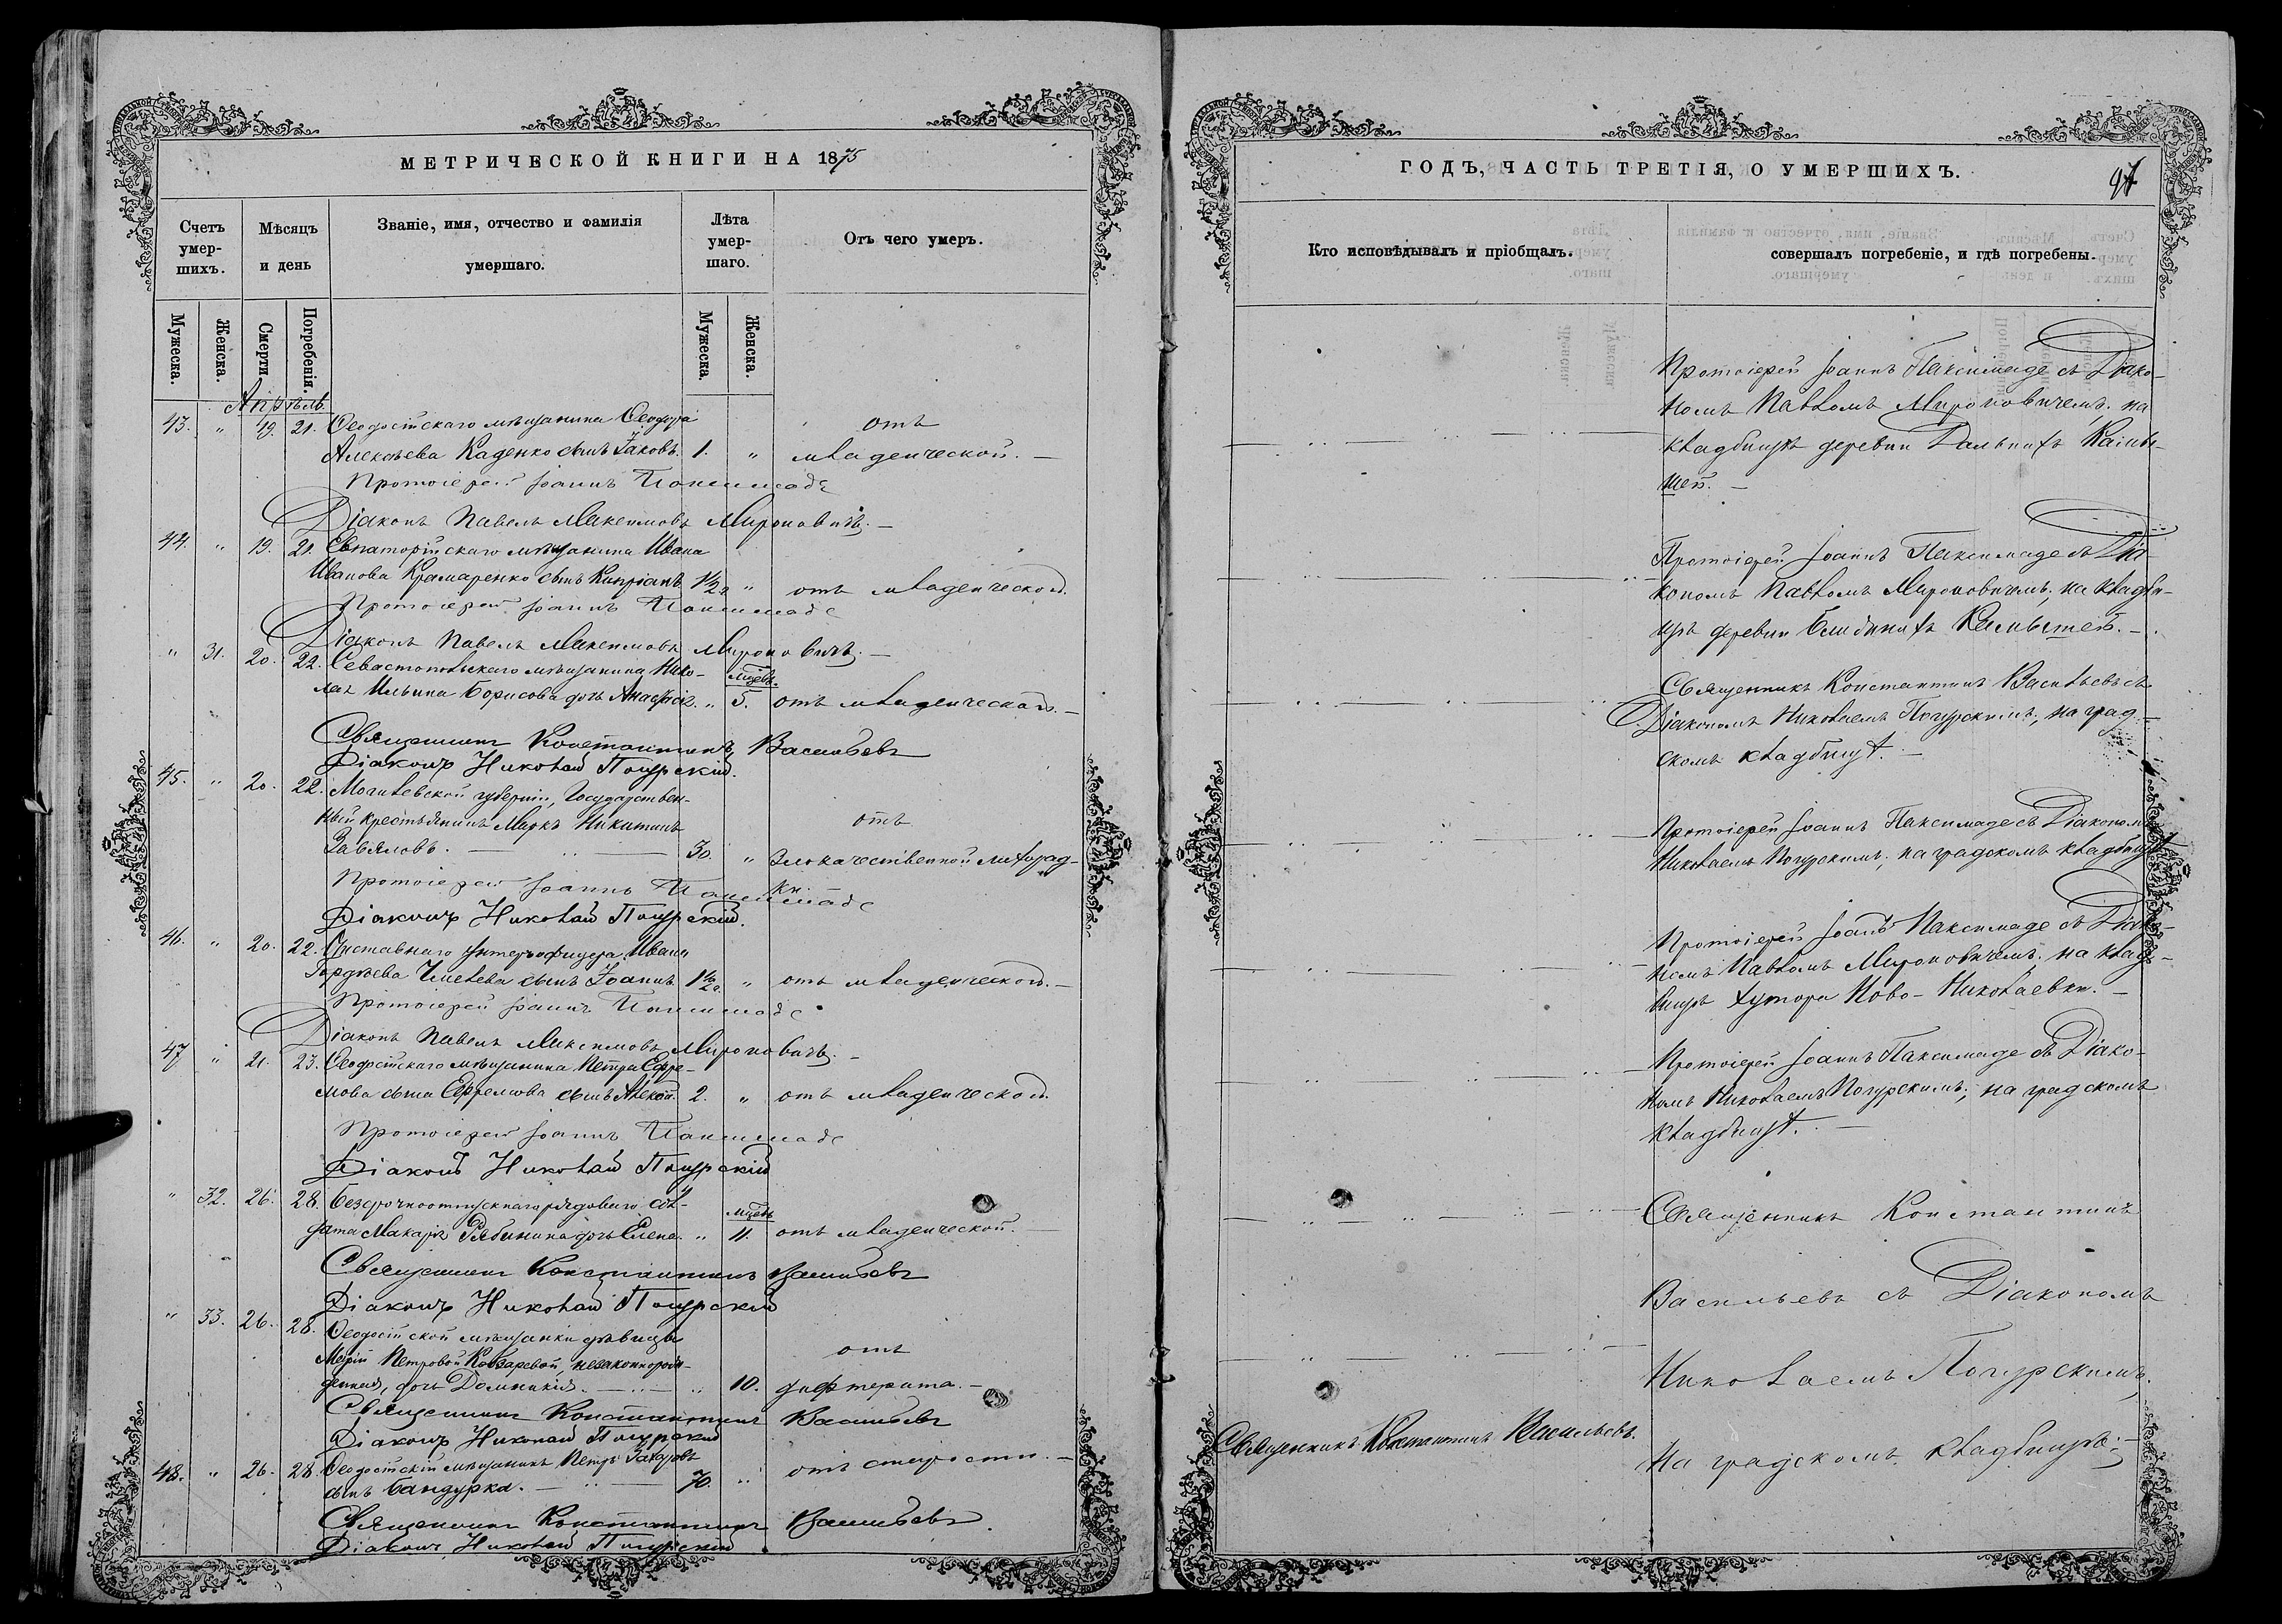 МЕТРИЧЕСКОЙ КНИГИ НА 1875
Счетъ умер-шихъ.
Мѣсяцъ и день
Званіе, имя, отчество и фамилія умершаго.
Лѣта умер-шаго.
Отъ чего умеръ.
Мужеска.
Женска.
Смерти
Погребенія.
Мужеска.
Женска.
Апрѣль
43. " 19. 21. Ѳеодосійскаго мѣщанина Ѳеодора отъ
Алексѣева Каденко сынъ Іаковъ. 1. " младенческой. —
Протоіерей Іоаннъ Паксимаде
Діаконъ Павелъ Максимовъ Мироновичъ. —
44. " 19. 21. Евпаторійскаго мѣщанина Ивана
Иванова Крамаренко сынъ Кипріанъ 1½ " отъ младенческой.
Протоіерей Іоаннъ Паксимаде
Діаконъ Павелъ Максимовъ Мироновичъ. —
" 31. 20. 22. Севастопольскаго мѣщанина Нико- мѣсяц.
лая Ильина Борисова дочь Анастасія. " 5. отъ младенческой. —
Священникъ Константинъ Васильевъ
Діаконъ Николай Погурскій.
45. " 20. 22. Могилевской губерніи, Государствен-
ный крестьянинъ Маркъ Никитинъ отъ
Завяловъ. — 30. " злокачественной лихорад-
ки.
Протоіерей Іоаннъ Паксимаде
Діаконъ Николай Погурскій.
46. " 20. 22. Отставнаго унтеръ-офицера Ивана
Гордѣева сынъ Іоаннъ 1½ " отъ младенческой. —
Протоіерей Іоаннъ Паксимаде
Діаконъ Павелъ Максимовъ Мироновичъ. —
47 " 21. 23. Ѳеодосійскаго мѣщанина Петра Ефре-
мова сына Ефремова сынъ Алексѣй. 2. " отъ младенческой.
Протоіерей Іоаннъ Паксимаде
Діаконъ Николай Погурскій
" 32. 26. 28. Безсрочноотпускнаго рядоваго сол-
дата Макарія Рябинина дочь Елена. " 11. отъ младенческой.
Священникъ Константинъ Васильевъ
Діаконъ Николай Погурскій
" 33. 26. 28. Ѳеодосійской мѣщанки дѣвицы
Маріи Петровой незаконнорож- отъ
денная, дочь Домникія. — " 10. дифтерита. —
Священникъ Константинъ Васильевъ
Діаконъ Николай Погурскій
48. " 26. 28. Ѳеодосійскій мѣщанинъ Петръ Захаровъ
сынъ Бандурка. — 70. " отъ старости. —
Священникъ Константинъ Васильевъ
Діаконъ Николай Погурскій
ГОДЪ, ЧАСТЬ ТРЕТІЯ, О УМЕРШИХЪ.
Кто исповѣдывалъ и пріобщалъ.
совершалъ погребеніе, и гдѣ погребены.
Протоіерей Іоаннъ Паксимаде съ Діако-
номъ Павломъ Мироновичемъ, на
кладбищѣ деревни Дальнихъ Камы-
шей. —
Протоіерей Іоаннъ Паксимаде съ Діа-
кономъ Павломъ Мироновичемъ, на кладби-
щѣ деревни Ближнихъ Камышей. —
Священникъ Константинъ Васильевъ съ
Діакономъ Николаемъ Погурскимъ, на град-
скомъ кладбищѣ. —
Протоіерей Іоаннъ Паксимаде съ Діакономъ
Николаемъ Погурскимъ, на градскомъ кладбищѣ
Протоіерей Іоаннъ Паксимаде съ Діако-
номъ Павломъ Мироновичемъ, на клад-
бищѣ хутора Ново-Николаевки. —
Протоіерей Іоаннъ Паксимаде съ Діако-
номъ Николаемъ Погурскимъ, на градскомъ
кладбищѣ. —
Священникъ Константинъ
Васильевъ съ Діакономъ
Николаемъ Погурскимъ,
Священникъ Константинъ Васильевъ.
на градскомъ кладбищѣ. —